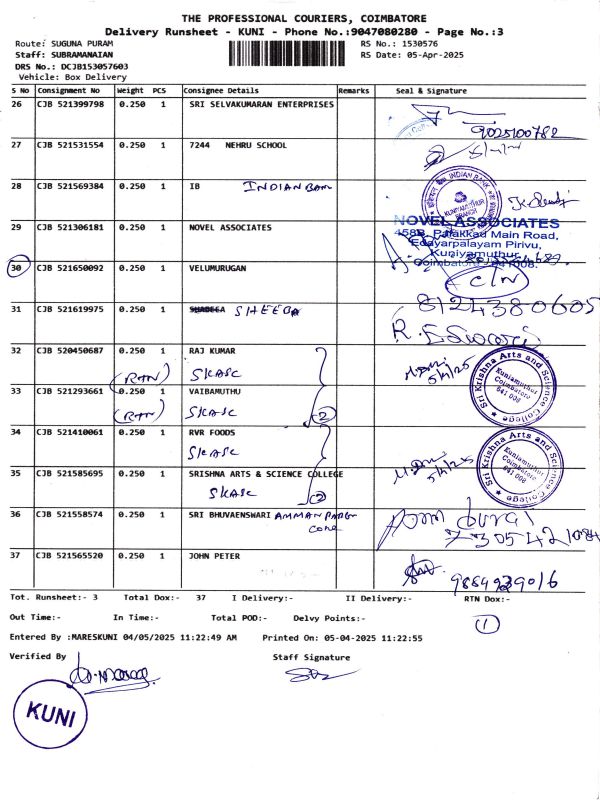 THE PROFESSIONAL COURIERS, COIMBATORE
Delivery Runsheet - KUNI - Phone No.:9047080280 - Page No.:3
Route: SUGUNA PURAM
Staff: SUBRAMANAIAN
DRS No.: DCJB153057603
Vehicle: Box Delivery
RS No.: 1530576
RS Date: 05-Apr-2025
S No Consignment No Weight PCS Consignee Details Remarks Seal & Signature
26 CJB 521399798 0.250 1 SRI SELVAKUMARAN ENTERPRISES
9025100782
27 CJB 521531554 0.250 1 7244 NEHRU SCHOOL
28 CJB 521569384 0.250 1 IB INDIAN BANK
INDIAN BANK
KUNIYAMUTHUR
BRANCH
29 CJB 521306181 0.250 1 NOVEL ASSOCIATES
NOVEL ASSOCIATES
458B, Palakkad Main Road,
Edayarpalayam Pirivu,
Kuniyamuthur,
Coimbatore - 641008.
30 CJB 521650092 0.250 1 VELUMURUGAN
C/N
31 CJB 521619975 0.250 1 SHEEBA
8124380605
32 CJB 520450687 0.250 1 RAJ KUMAR
(RTN) SKASC
5/4/25
Sri Krishna Arts and Science College
Kuniamuthur
Coimbatore
641 008
33 CJB 521293661 0.250 1 VAIBAMUTHU
(RTN) SKASC 2
34 CJB 521410061 0.250 1 RVR FOODS
SKASC
5/4/25
Sri Krishna Arts and Science College
Kuniamuthur
Coimbatore
641 008
35 CJB 521585695 0.250 1 SRISHNA ARTS & SCIENCE COLLEGE
SKASC 2
36 CJB 521558574 0.250 1 SRI BHUVAENSHWARI AMMAN
37 CJB 521565520 0.250 1 JOHN PETER
9884939016
Tot. Runsheet:- 3 Total Dox:- 37 I Delivery:- II Delivery:- RTN Dox:-
Out Time:- In Time:- Total POD:- Delvy Points:-
1
Entered By :MARESKUNI 04/05/2025 11:22:49 AM Printed On: 05-04-2025 11:22:55
Verified By Staff Signature
KUNI